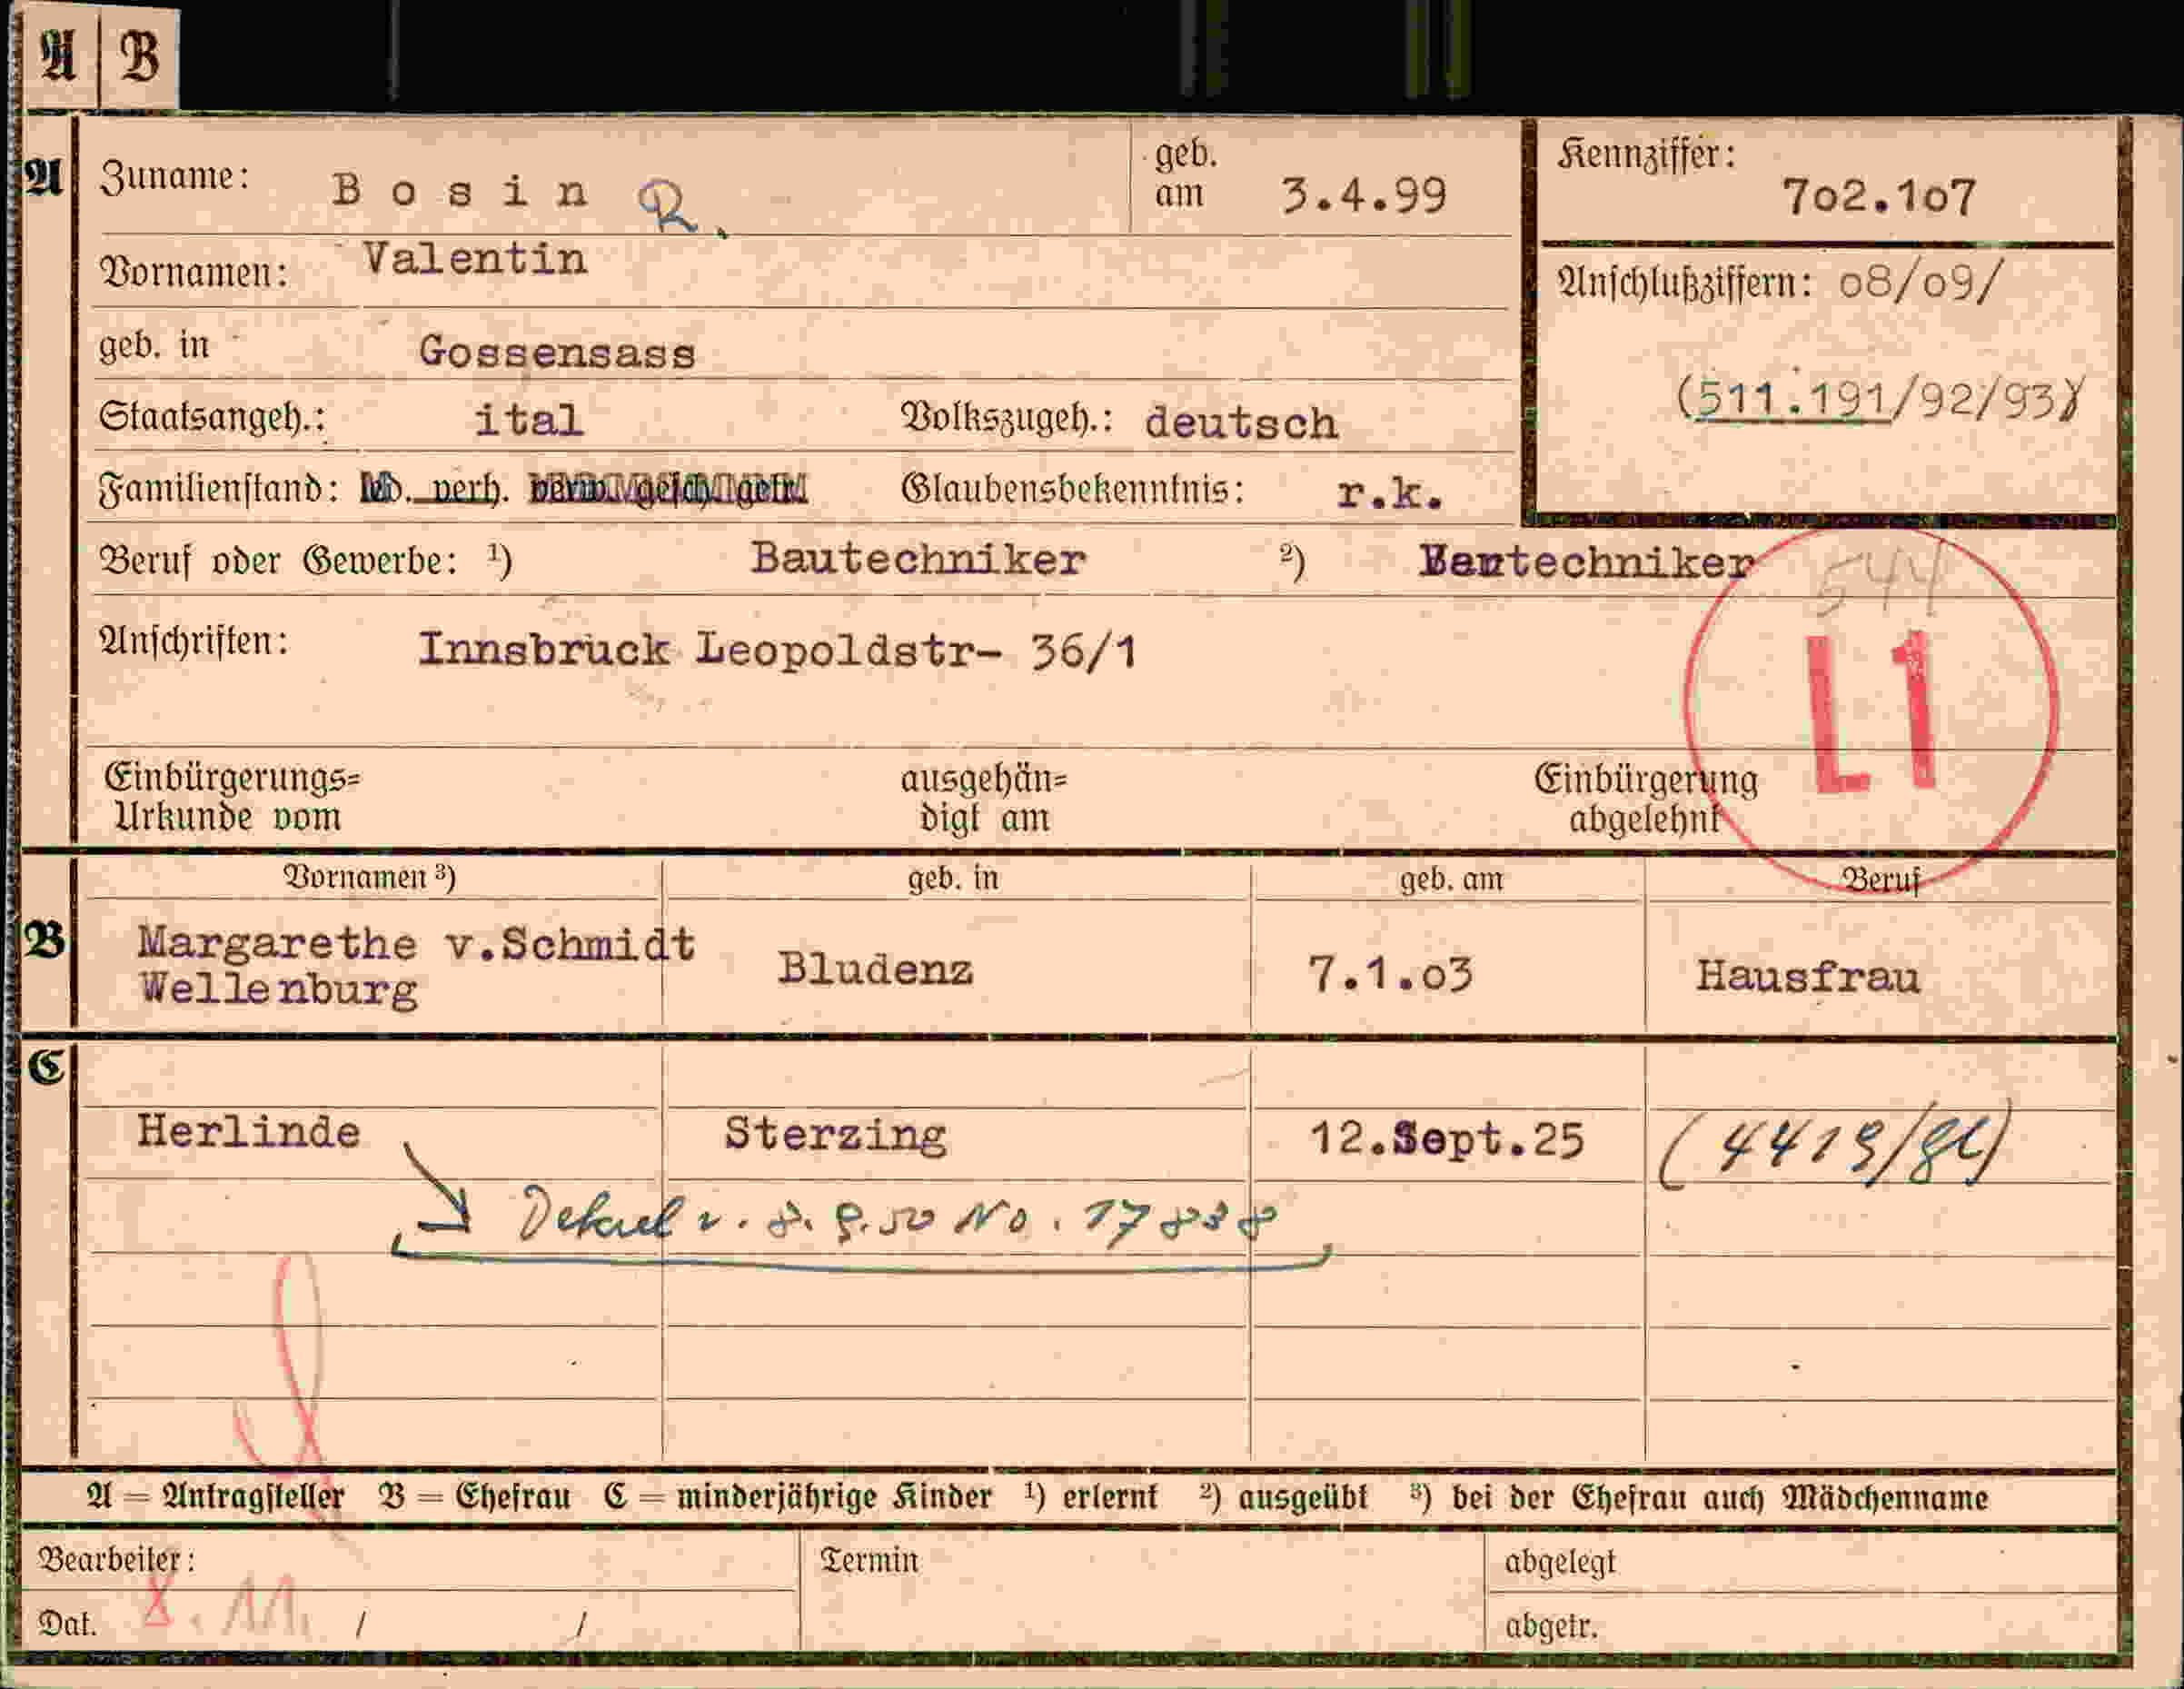 A B
A Zuname: Bosin R. geb. am 3.4.99 Kennziffer: 702.107
Vornamen: Valentin Anschlußziffern: 08/09/
geb. in Gossensass
Staatsangeh.: ital Volkszugeh.: deutsch (511.191/92/93)
Familienstand: led. verh. verw. gesch. getr. Glaubensbekenntnis: r.k.
Beruf oder Gewerbe: ¹) Bautechniker ²) Bautechniker 544
Anschriften: Innsbruck Leopoldstr- 36/1
L1
Einbürgerungs= ausgehän= Einbürgerung
Urkunde vom digt am abgelehnt
Vornamen ³) geb. in geb. am Beruf
B Margarethe v.Schmidt Bludenz 7.1.03 Hausfrau
Wellenburg
C
Herlinde Sterzing 12.Sept.25
v. 8.9.50 No. 17838
A = Antragsteller B = Ehefrau C = minderjährige Kinder ¹) erlernt ²) ausgeübt ³) bei der Ehefrau auch Mädchenname
Bearbeiter: Termin abgelegt
Dat. 8.11. / / abgetr.